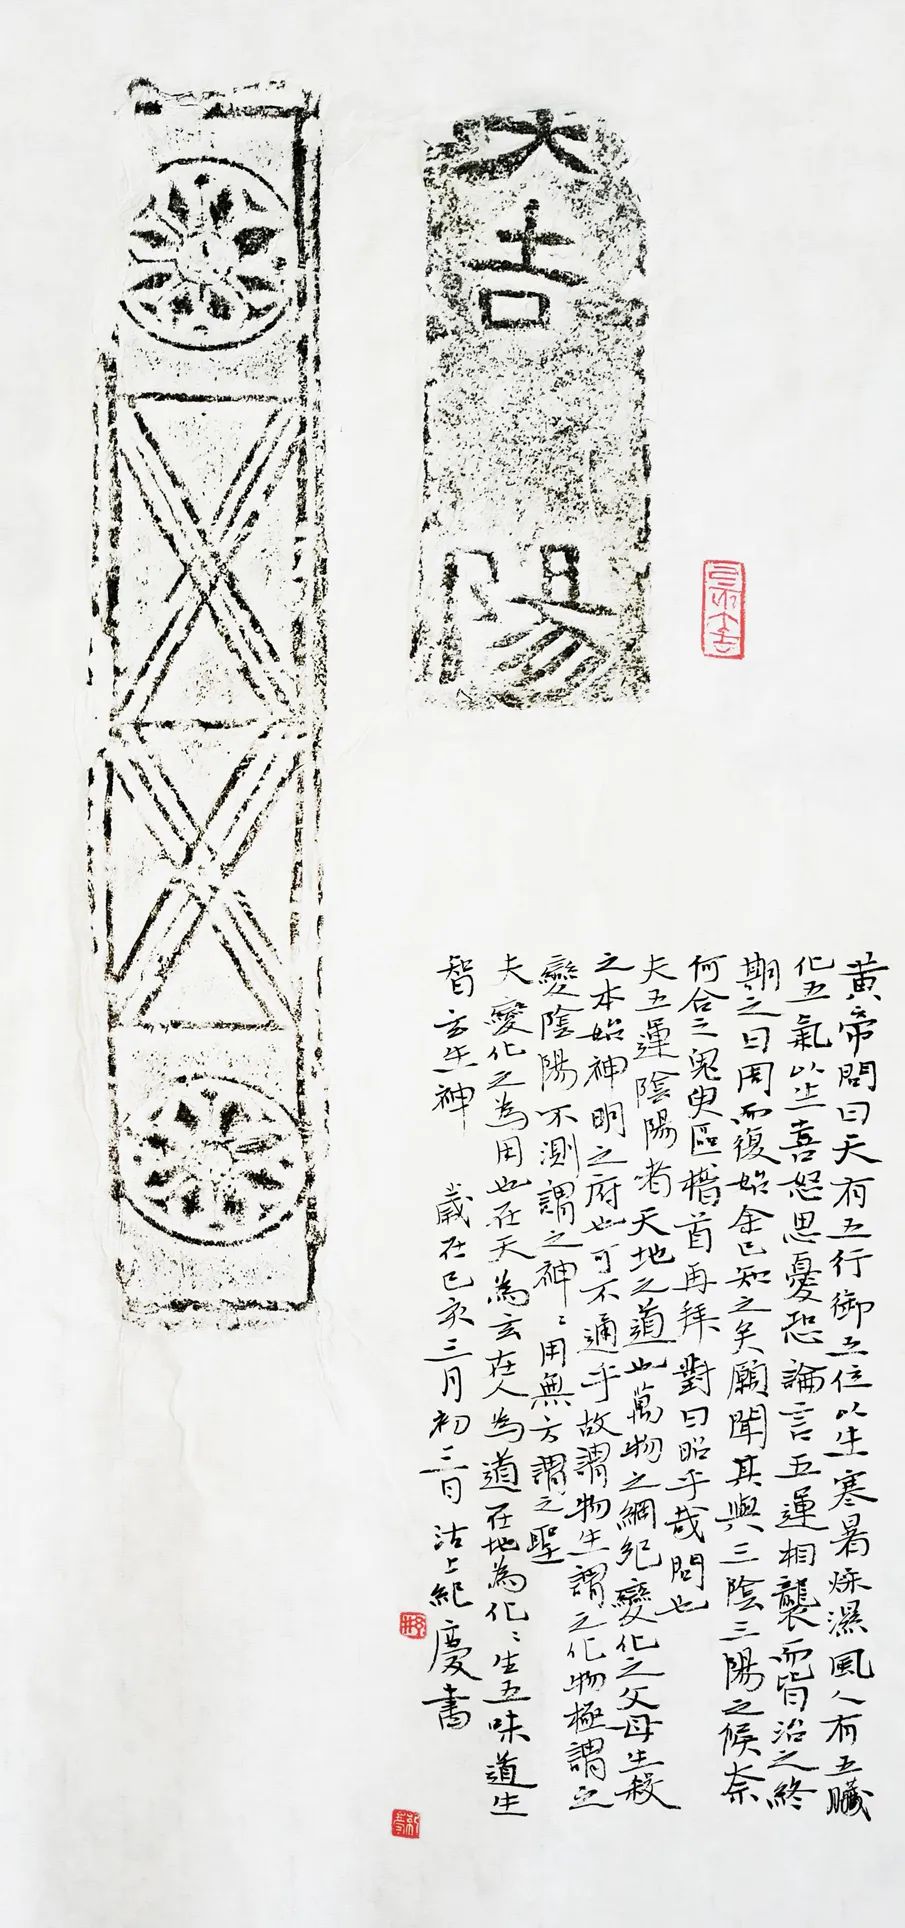 大吉
陽
黃帝問曰天有五行御五位以生寒暑燥濕風人有五臟
化五氣以生喜怒思憂恐論言五運相襲而皆治之終
期之日周而復始余已知之矣願聞其與三陰三陽之候奈
何合之鬼臾區稽首再拜對曰昭乎哉問也
夫五運陰陽者天地之道也萬物之綱紀變化之父母生殺
之本始神明之府也可不通乎故謂物生謂之化物極謂之
變陰陽不測謂之神〻用無方謂之聖
夫變化之為用也在天為玄在人為道在地為化〻生五味道生
智玄生神　歲在己亥三月初三日沽上紀慶書